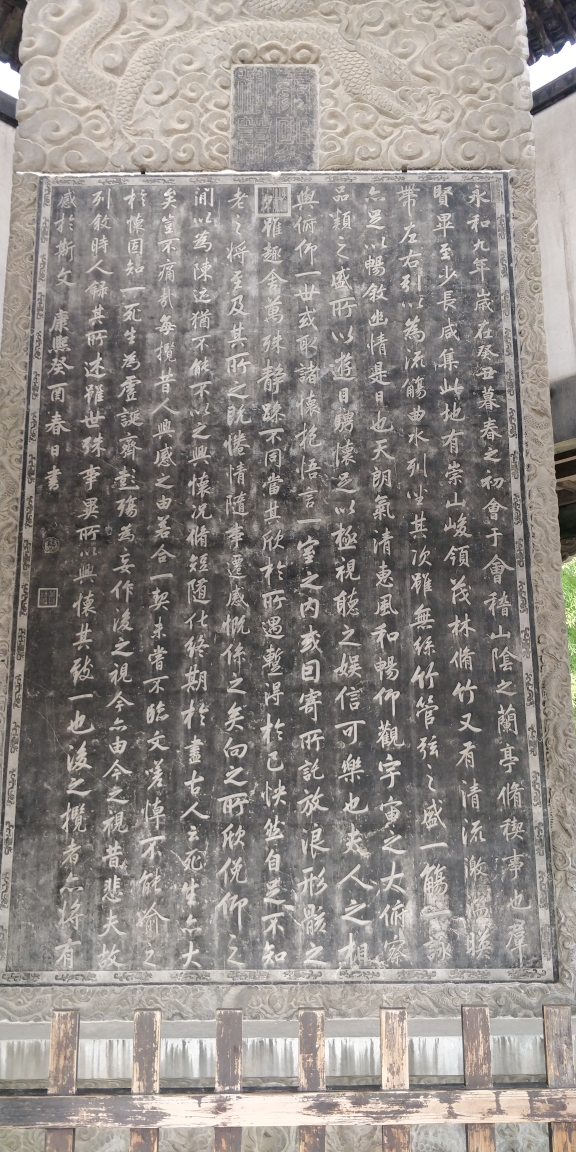 永和九年歲在癸丑暮春之初會于會稽山陰之蘭亭脩稧事也群
賢畢至少長咸集此地有崇山峻領茂林脩竹又有清流激湍暎
帶左右引以為流觴曲水列坐其次雖無絲竹管弦之盛一觴一詠
亦足以暢敘幽情是日也天朗氣清惠風和暢仰觀宇宙之大俯察
品類之盛所以遊目騁懷足以極視聽之娛信可樂也夫人之相
與俯仰一世或取諸懷抱悟言一室之內或因寄所託放浪形骸之
雖趣舍萬殊靜躁不同當其欣於所遇暫得於己快然自足不知
老之將至及其所之既惓情隨事遷感慨係之矣向之所欣俛仰之
閒以為陳迹猶不能不以之興懷況脩短隨化終期於盡古人云死生亦大
矣豈不痛哉每攬昔人興感之由若合一契未嘗不臨文嗟悼不能喻之
於懷固知一死生為虛誕齊彭殤為妄作後之視今亦由今之視昔悲夫故
列敘時人錄其所述雖世殊事異所以興懷其致一也後之攬者亦將有
感於斯文 康熙癸酉春日書